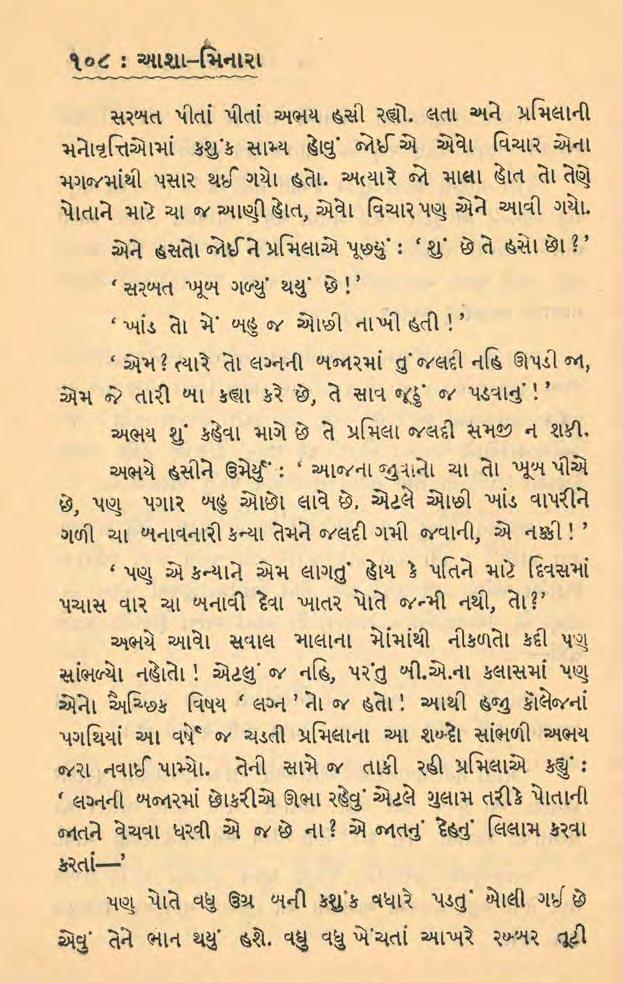 ૧૦૮ : આશા–મિનારા
સરબત પીતાં પીતાં અભય હસી રહ્યો. લતા અને પ્રમિલાની
મનોવૃત્તિઓમાં કશુંક સામ્ય હોવું જોઈએ એવો વિચાર એના
મગજમાંથી પસાર થઈ ગયો હતો. અત્યારે જો માલા હોત તો તેણે
પોતાને માટે ચા જ આણી હોત, એવો વિચાર પણ એને આવી ગયો.
એને હસતો જોઈને પ્રમિલાએ પૂછયું : ‘શું છે તે હસો છો ?’
‘ સરબત ખૂબ ગળ્યું થયું છે ! ’
‘ ખાંડ તો મેં બહુ જ ઓછી નાખી હતી ! ’
‘ એમ ? ત્યારે તો લગ્નની બજારમાં તું જલદી નહિ ઊપડી જા,
એમ જે તારી બા કહ્યા કરે છે, તે સાવ જૂઠું જ પડવાનું ! ’
અભય શું કહેવા માગે છે તે પ્રમિલા જલદી સમજી ન શકી.
અભયે હસીને ઉમેર્યું : ‘ આજના જુવાનો ચા તો ખૂબ પીએ
છે, પણ પગાર બહુ ઓછો લાવે છે. એટલે ઓછી ખાંડ વાપરીને
ગળી ચા બનાવનારી કન્યા તેમને જલદી ગમી જવાની, એ નક્કી ! ’
‘ પણ એ કન્યાને એમ લાગતું હોય કે પતિને માટે દિવસમાં
પચાસ વાર ચા બનાવી દેવા ખાતર પોતે જન્મી નથી, તો ?’
અભયે આવો સવાલ માલાના મોંમાંથી નીકળતો કદી પણ
સાંભળ્યો નહોતો ! એટલું જ નહિ, પરંતુ બી.એ.ના કલાસમાં પણ
એનો ઐચ્છિક વિષય ‘ લગ્ન ’નો જ હતો ! આથી હજી કૉલેજનાં
પગથિયાં આ વર્ષે જ ચડતી પ્રમિલાના આ શબ્દો સાંભળી અભય
જરા નવાઈ પામ્યો. તેની સામે જ તાકી રહી પ્રમિલાએ કહ્યું :
‘ લગ્નની બજારમાં છોકરીએ ઊભા રહેવું એટલે ગુલામ તરીકે પોતાની
જાતને વેચવા ધરવી એ જ છે ના ? એ જાતનું દેહનું લિલામ કરવા
કરતાં—’
પણ પોતે વધુ ઉગ્ર બની કશુંક વધારે પડતું બોલી ગઈ છે
એવું તેને ભાન થયું હશે. વધુ વધુ ખેંચતાં આખરે રબ્બર તૂટી